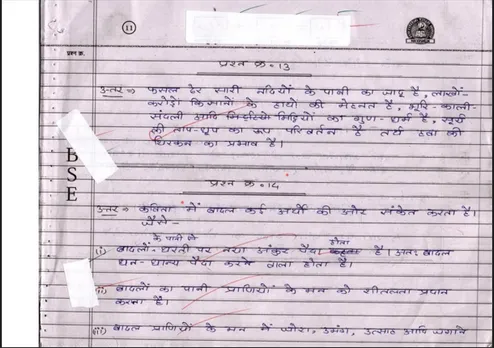 11
प्रश्न क्र.
प्रश्न क्र. = 13
उत्तर ⇒ फसल ढेर सारी नदियों के पानी का जादू है, लाखों-
करोड़ो किसानों के हाथों की मेहनत है, भूरि-काली-
संदली आदि मिट्टियों का गुण-धर्म है, सूर्य
की ताप-धूप का रूप परिवर्तन है तथा हवा की
थिरकन का प्रभाव है।
B
S
E
प्रश्न क्र. = 14
उत्तर ⇒ कविता में बादल कई अर्थों की ओर संकेत करता है।
जैसे-
के पानी से होता
(i) बादलों-धरती पर नया अंकुर पैदा है। अतः बादल
धन-धान्य पैदा करने वाला होता है।
(ii) बादलों का पानी प्राणियों के मन को शीतलता प्रदान
करता है।
(iii) बादल प्राणियों के मन में जोश, उमंग, उत्साह आदि जगाने